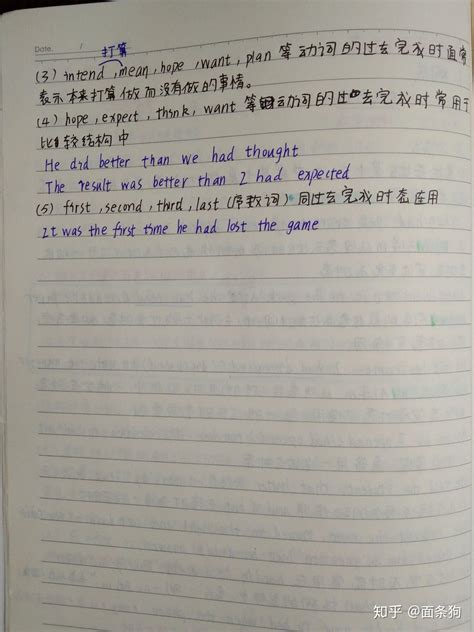 Date.
打算
(3) intend, mean, hope, want, plan 等动词的过去完成时通常
表示本来打算做而没有做的事情。
(4) hope, expect, think, want 等动词的过去完成时常用于
比较结构中
He did better than we had thought
The result was better than I had expected
(5) first, second, third, last (序数词) 同过去完成时态连用
It was the first time he had lost the game
知乎 @面条狗